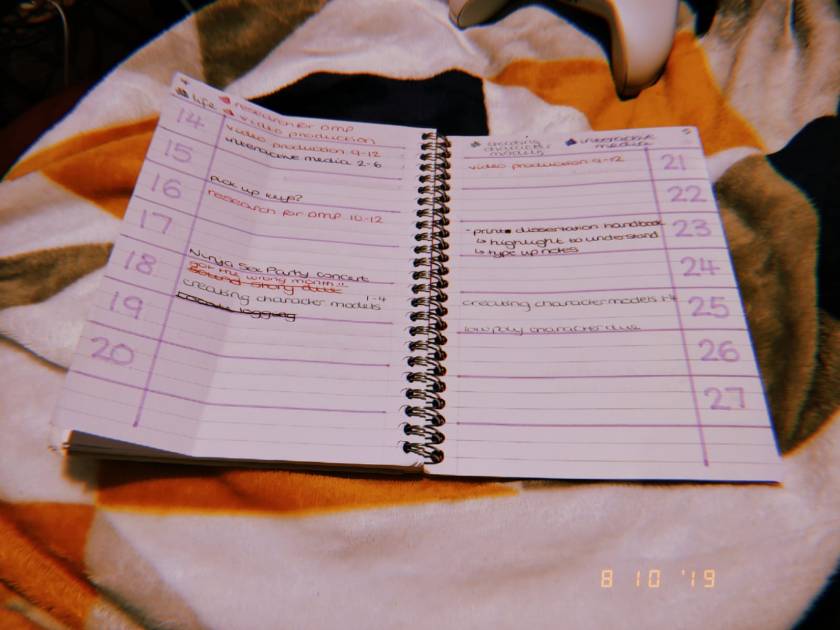 life
research for DMP
video production
14
video production 9-12
15
interactive media 2-6
16
pick up
research for DMP 10-12
17
18
Ninja Sex Party concert
got my wrong month!!
19
creating character models 1-4
20
creating
character
models
interactive
media
video production 9-12
21
22
- print dissertation handbook
23
↳ highlight to understand
↳ type up notes
24
creating character models 1-4
25
low poly character due
26
27
8 10 '19